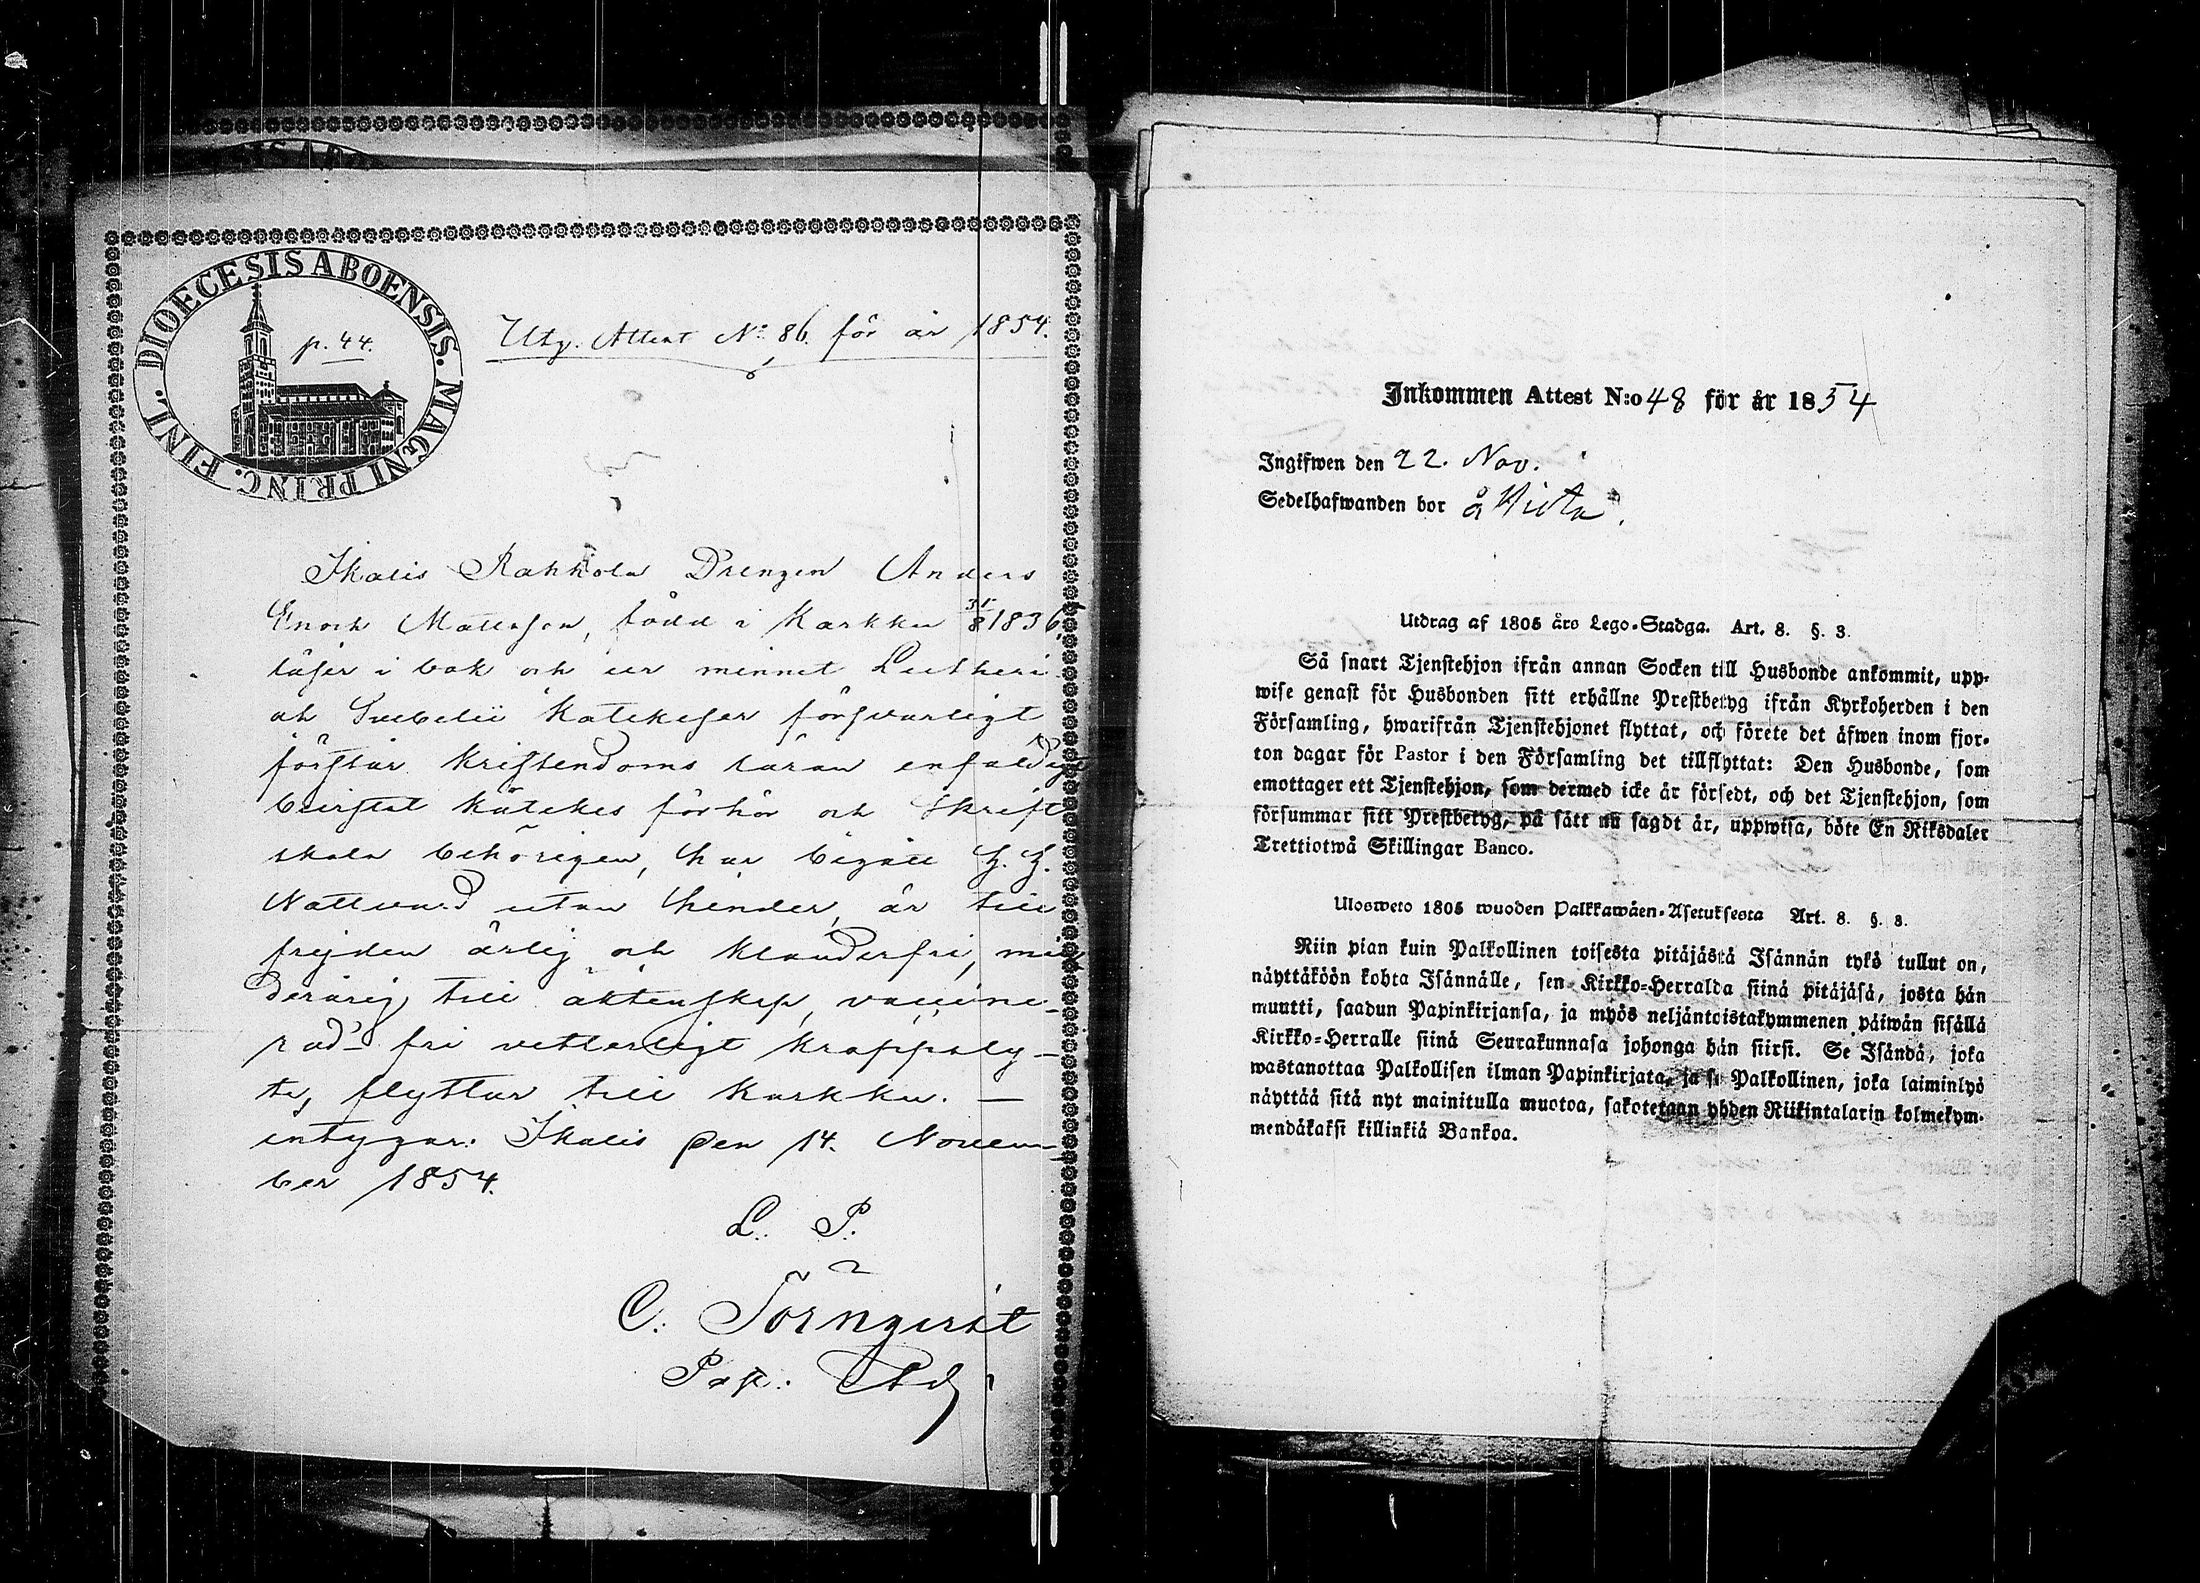 DIOECESIS ABOENSIS. MAGNI PRINC. FINL.
p. 44.
Utg. Attest No: 86. för år 1854.
Ikalis Rahkola Drengen Anders
Enoch Mattsson, född i Karkku 31/8 1836,
läser i bok och ur minnet Lutheri
och Svebelii Katekeser försvarligt
förstår Kristendoms läran enfaldigt
bevistat Katekes förhör och Skrift
skola behörigen, har begått H. H.
Nattvard utan hinder, är till
frejden ärlig och klanderfri, min
derårig till äktenskap, vaccine-
rad fri vetterligt kroppsly-
te, flyttar till Karkku. —
intygar. Ikalis den 14. Novem-
ber 1854.
L. P.
C. Törnqvist
Past. Adj
Inkommen Attest N:o 48 för år 1854
Ingifwen den 22. Nov.
Sedelhafwanden bor å
Utdrag af 1805 års Lego-Stadga. Art. 8. §. 3.
Så snart Tjenstehjon ifrån annan Socken till Husbonde ankommit, upp-
wise genast för Husbonden sitt erhållne Prestbetyg ifrån Kyrkoherden i den
Församling, hwarifrån Tjenstehjonet flyttat, och förete det äfwen inom fjor-
ton dagar för Pastor i den Församling det tillflyttat: Den Husbonde, som
emottager ett Tjenstehjon, som dermed icke är försedt, och det Tjenstehjon, som
försummar sitt Prestbetyg, på sätt nu sagdt är, uppwisa, böte En Riksdaler
Trettiotwå Skillingar Banco.
Ulosweto 1805 wuoden Palkkawäen-Asetuksesta Art. 8. §. 3.
Niin pian kuin Palkollinen toisesta pitäjästä Isännän tykö tullut on,
näyttäköön kohta Isännälle, sen Kirkko-Herralda siinä pitäjäsä, josta hän
muutti, saadun Papinkirjansa, ja myös neljäntoistakymmenen päiwän sisällä
Kirkko-Herralle siinä Seurakunnasa johonga hän siirsi. Se Isändä, joka
wastanottaa Palkollisen ilman Papinkirjata, ja se Palkollinen, joka laiminlyö
näyttää sitä nyt mainitulla muotoa, sakotetaan yhden Riikintalarin kolmekym-
mendäkaksi killinkiä Bankoa.